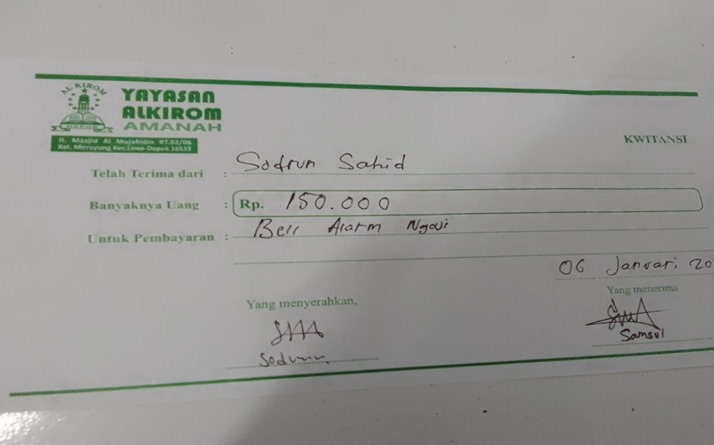 AL KIROM
YAYASAN
ALKIROM
AMANAH
Jl. Masjid Al Mujahidin RT.02/06
Kel. Meruyung Kec.Limo Depok 16515
KWITANSI
Telah Terima dari : Sodrun Sahid
Banyaknya Uang : Rp. 150.000
Untuk Pembayaran : Bell Alarm Ngaji
06 Januari 20
Yang menyerahkan, Yang menerima
Sodrun Samsul